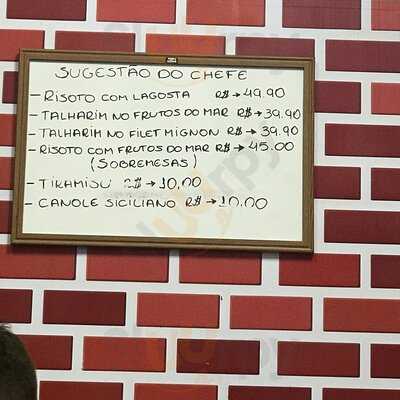 SUGESTÃO DO CHEFE
- RISOTO COM LAGOSTA R$→49.90
- TALHARIM NO FRUTOS DO MAR R$→39.90
- TALHARIM NO FILET MIGNON R$→39.90
- RISOTO COM FRUTOS DO MAR R$→45.00
(SOBREMESAS)
- TIRAMISÚ R$→10,00
- CANOLE SICILIANO R$→10.00